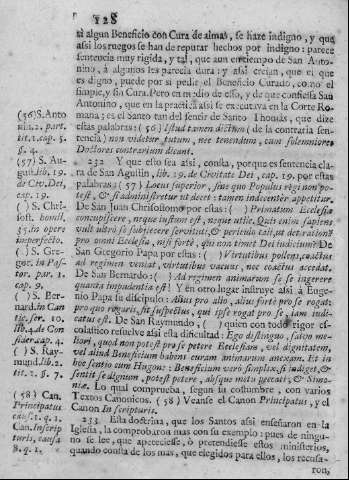 128
si algun Beneficio con Cura de almas, se haze indigno, y que
assi los ruegos se han de reputar hechos por indigno: parece
sentencia muy rigida, y tal, que aun en tiempo de San Anto-
nino, à algunos les parecia dura: y assi creìan, que el que
es digno, puede por si pedir el Beneficio Curado, como el
simple, y sin Cura. Pero en medio de esso, y de que confiessa San
Antonino, que en la practica assi se executava en la Corte Ro-
mana; es el Santo tan del sentir de Santo Thomàs, que dize
estas palabras: (56) Istud tamen dictum (de la contraria sen-
tencia) non videtur tutum, nec tenendum, cum solemniores
Doctores contrarium dicant.
232 Y que esto sea assi, consta, porque es sentencia cla-
ra de San Agustin, lib. 19. de Civitate Dei, cap. 19. por estas
palabras: (57) Locus superior, sine quo Populus regi non po-
test, & si administretur ut decet: tamen indecenter appetitur.
De San Juan Chrisostomo por estas: ( ) Primatum Ecclesiæ
concupiscere, neque iustum est, neque utile. Quit enim sapiens
vult ultrò se subijcere servituti, & periculo tali, ut det rationem
pro omni Ecclesia, nisi fortè, qui non timet Dei iudicium? De
San Gregorio Papa por estas: ( ) Virtutibus pollens, coactus
ad regimen veniat, virtutibus vacuus, nec coactus accedat.
De San Bernardo: ( ) Ad regimen animarum se se ingerere
quanta impudentia est! Y en otro lugar instruye assi à Euge-
nio Papa su discipulo: Alius pro alio, alius fortè pro se rogat:
pro quo rogaris, sit suspectus, qui ipse rogat pro se, iam iudi-
catus est. De San Raymundo, ( ) quien con todo rigor es-
colastico resuelve assi esta dificultad: Ego distinguo, salvo me-
liori, quod non potest pro se petere Ecclesiam, vel dignitatem,
vel aliud Beneficium habens curam animarum annexam. Et in
hoc sentio cum Hugone: Beneficium verò simplex, si indiget, &
sentit se dignum, potest petere, absque metu peccati, & Simo-
niæ. Lo qual comprueba, segun la costumbre, con varios
Textos Canonicos. (58) Veanse el Canon Principatus, y el
Canon In scripturis.
233 Esta doctrina, que los Santos assi enseñaron en la
Iglesia, la comprobaron mas con su exemplo: pues de ningu-
no se lee, que apeteciesse, ò pretendiesse estos ministerios,
quando consta de los mas, que elegidos para ellos, los recusa-
ron,
(56) S. Anto-
nin. 2. part.
tit. 1. cap. 5.
§. 4.
(57) S. Au-
gust. lib. 19.
de Civ. Dei,
cap. 19.
( ) S. Chri-
sost. homil.
35. in opere
imperfecto.
( ) S. Gre-
gor. in Pas-
tor. par. 1.
cap. 9.
( ) S. Ber-
nard. in Can
tic. ser. 10.
lib. 4. de Con
sider. cap. 4.
( ) S. Ray-
mund. lib. 2.
tit. 2. §. 7.
(58) Can.
Principatus
caus. 1. q. 1.
Can. In scrip-
turis, causa
8. q. 1.